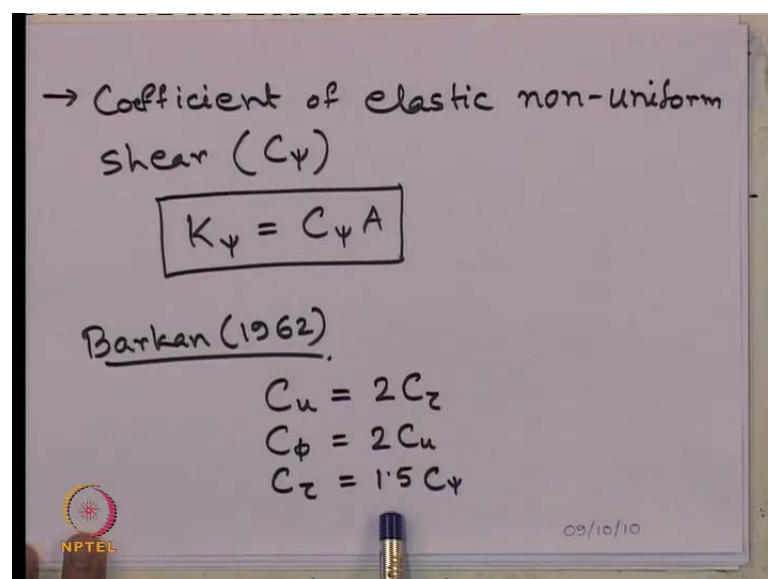 → Coefficient of elastic non-uniform
shear (Cψ)
Kψ = Cψ A
Barkan (1962).
Cu = 2Cτ
Cϕ = 2Cu
Cτ = 1.5 Cψ
09/10/10
NPTEL